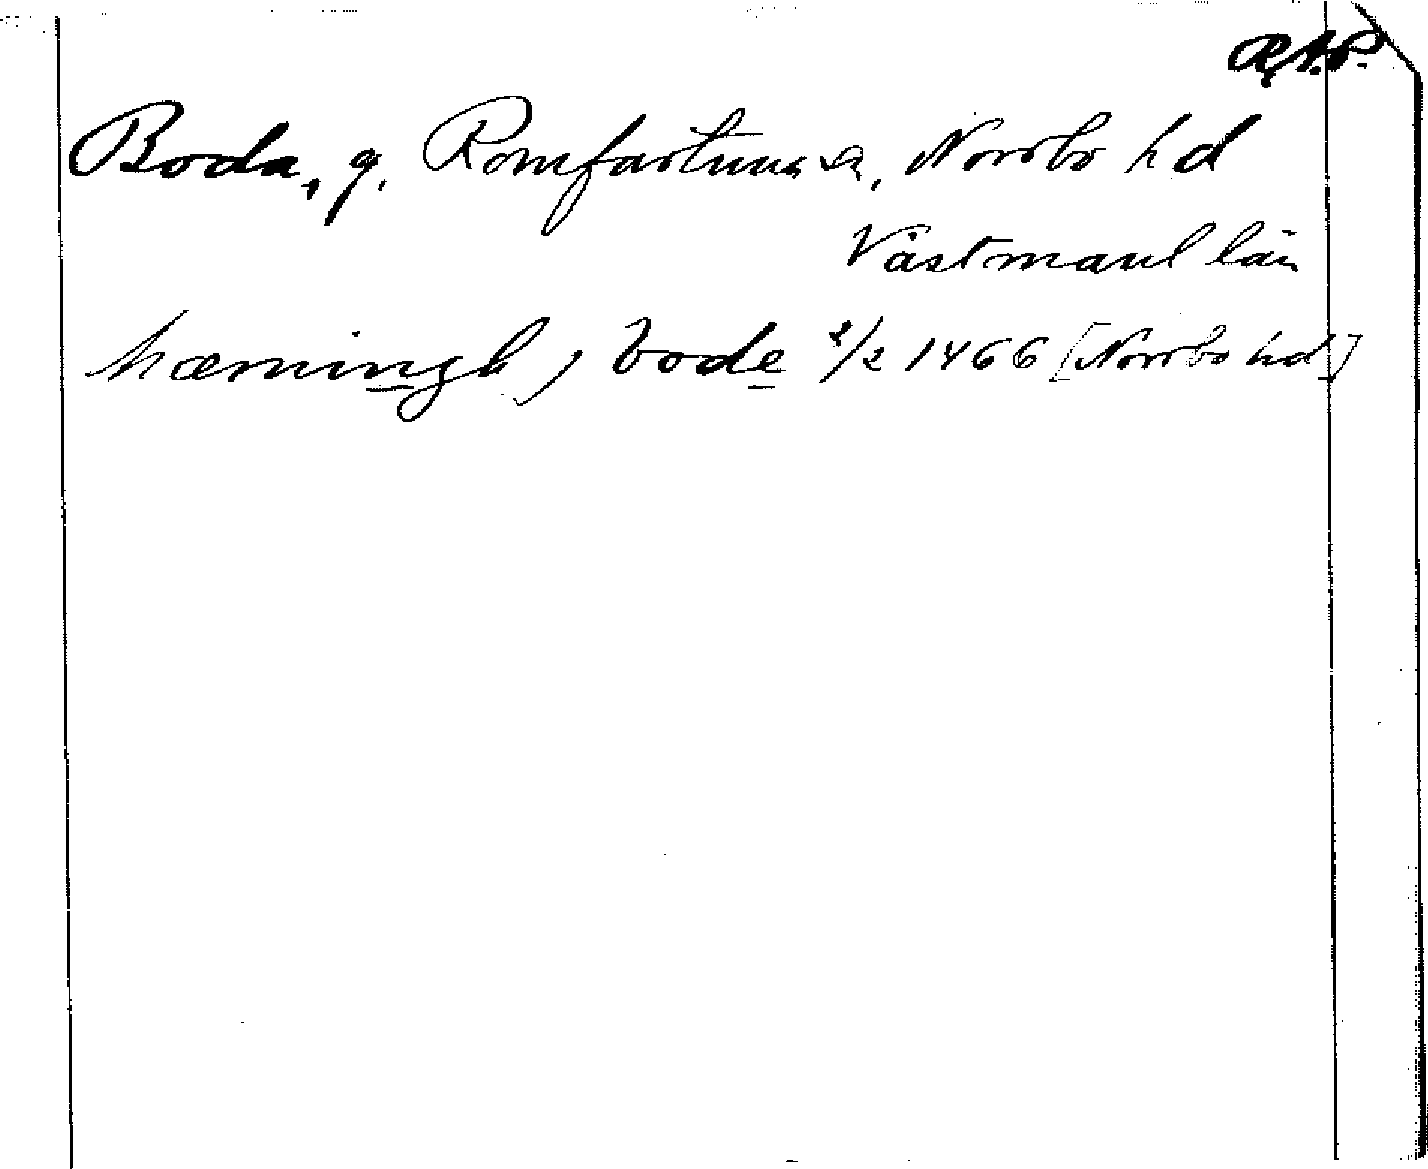 R.A.P.
Boda, g. Romfartuna sn, Norrbo hd
Västmanl län
hærningh, bode 2/2 1466 [Norrbo hd]